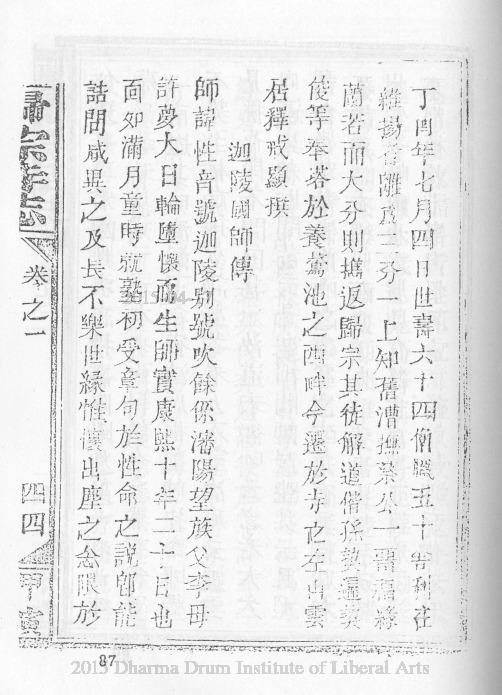 丁酉年七月四日世壽六十四僧臘五十舍利在
維揚者離爲三分一上知舊漕撫公一留福緣
蘭若而大分則攜返歸宗其徒解道偕孫等
俊等奉塔於養鵞池之西畔今遷於寺之左山雲
居釋戒顯撰
迦陵國師傳
師諱性音號迦陵別號吹餘係瀋陽望族父李母
許夢大日輪墮懷而生師實康熙十年二十日也
面如滿月童時就塾初受章句於性命之說卽能
詰問咸異之及長不樂世緣惟懷出塵之念限於
歸宗寺志
卷之一
四四
87
2015 Dharma Drum Institute of Liberal Arts